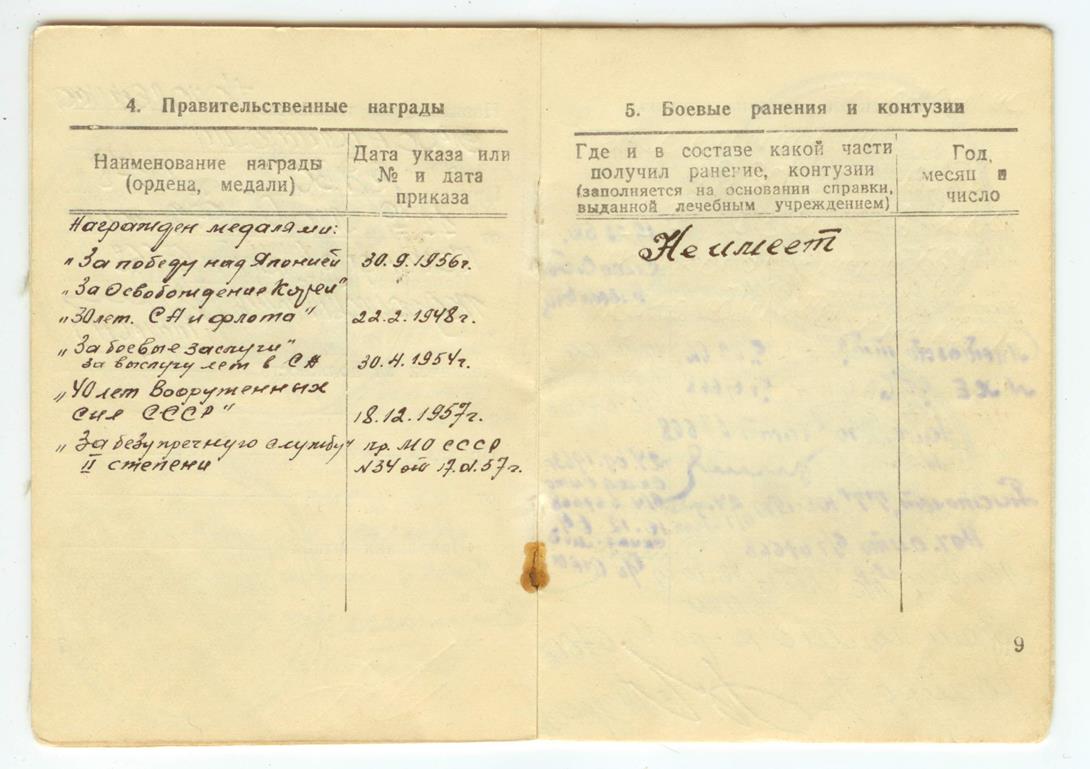 4. Правительственные награды
Наименование награды
(ордена, медали)
Дата указа или
№ и дата
приказа
Награжден медалями:
„За победу над Японией 30.9.1956г.
„За Освобождение Кореи"
„30 лет. СА и флота" 22.2.1948г.
„За боевые заслуги"
за выслугу лет в СА 30.4.1954г.
„40 лет Вооруженных
сил СССР" 18.12.1957г.
„За безупречную службу" пр. МО СССР
II степени N34 от 17.01.57г.
5. Боевые ранения и контузии
Где и в составе какой части
получил ранение, контузии
(заполняется на основании справки,
выданной лечебным учреждением)
Год,
месяц и
число
Не имеет
9